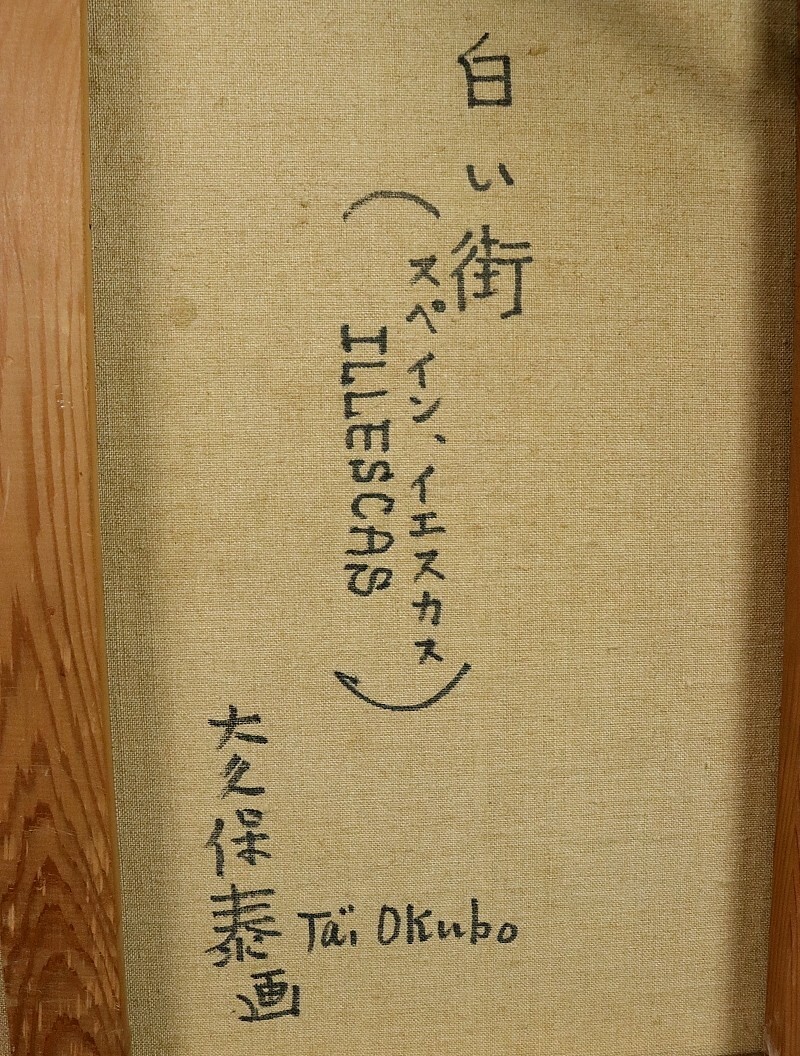 白い街
(スペイン、イエスカス
ILLESCAS)
大久保泰画
Taï Okubo